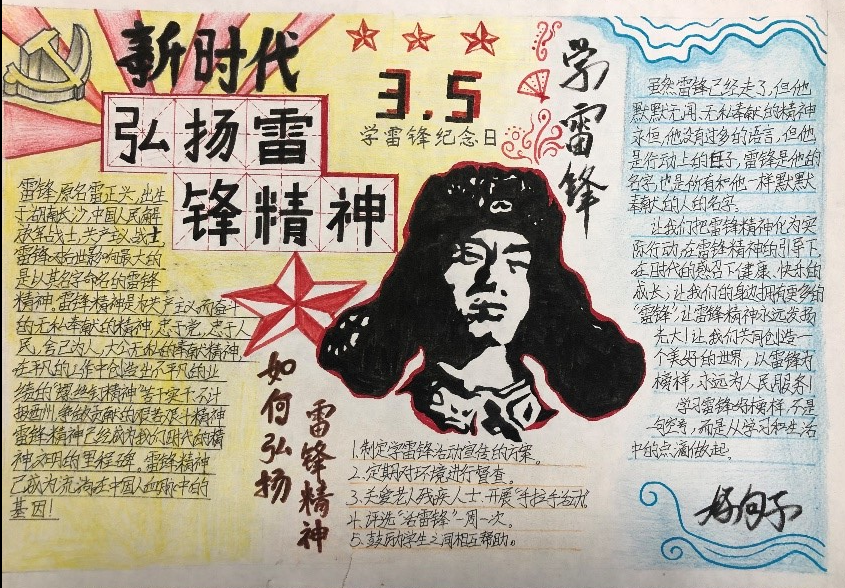 新时代
弘扬雷
锋精神
3.5
学雷锋纪念日
学雷锋
雷锋,原名雷正兴,出生
于湖南长沙,中国人民解
放军战士,共产主义战士
雷锋对后世影响最大的
是以其名字命名的雷锋
精神。雷锋精神是为共产主义而奋斗
的无私奉献的精神,忠于党,忠于人
民,舍己为人,大公无私的奉献精神,
在平凡的工作中创造出不平凡的业
绩的"螺丝钉精神"苦干实干,不计
报酬,争做贡献的艰苦奋斗精神
雷锋精神已经成为我们时代的精
神文明的里程碑。雷锋精神
已成为流淌在中国人血脉中的
基因!
如何弘扬
雷锋精神
1.制定学雷锋活动宣传的方案。
2.定期对环境进行督查。
3.关爱老人残疾人士,开展"手拉手活动。
4.评选"活雷锋"一周一次。
5.鼓励学生之间相互帮助。
虽然雷锋已经走了,但他
默默无闻、无私奉献的精神
永恒,他没有过多的语言,但他
是行动上的日子,雷锋是他的
名字,也是所有和他一样默默
奉献的人的名字。
让我们把雷锋精神化为实
际行动,在雷锋精神的引导下,
在时代的感召下健康、快乐的
成长;让我们的身边拥有更多的
"雷锋"让雷锋精神永远发扬
光大!让我们共同创造一
个美好的世界,以雷锋为
榜样,永远为人民服务!
学习雷锋好榜样,不是
一句空言,而是从学习和生活
中的点滴做起。
好句子